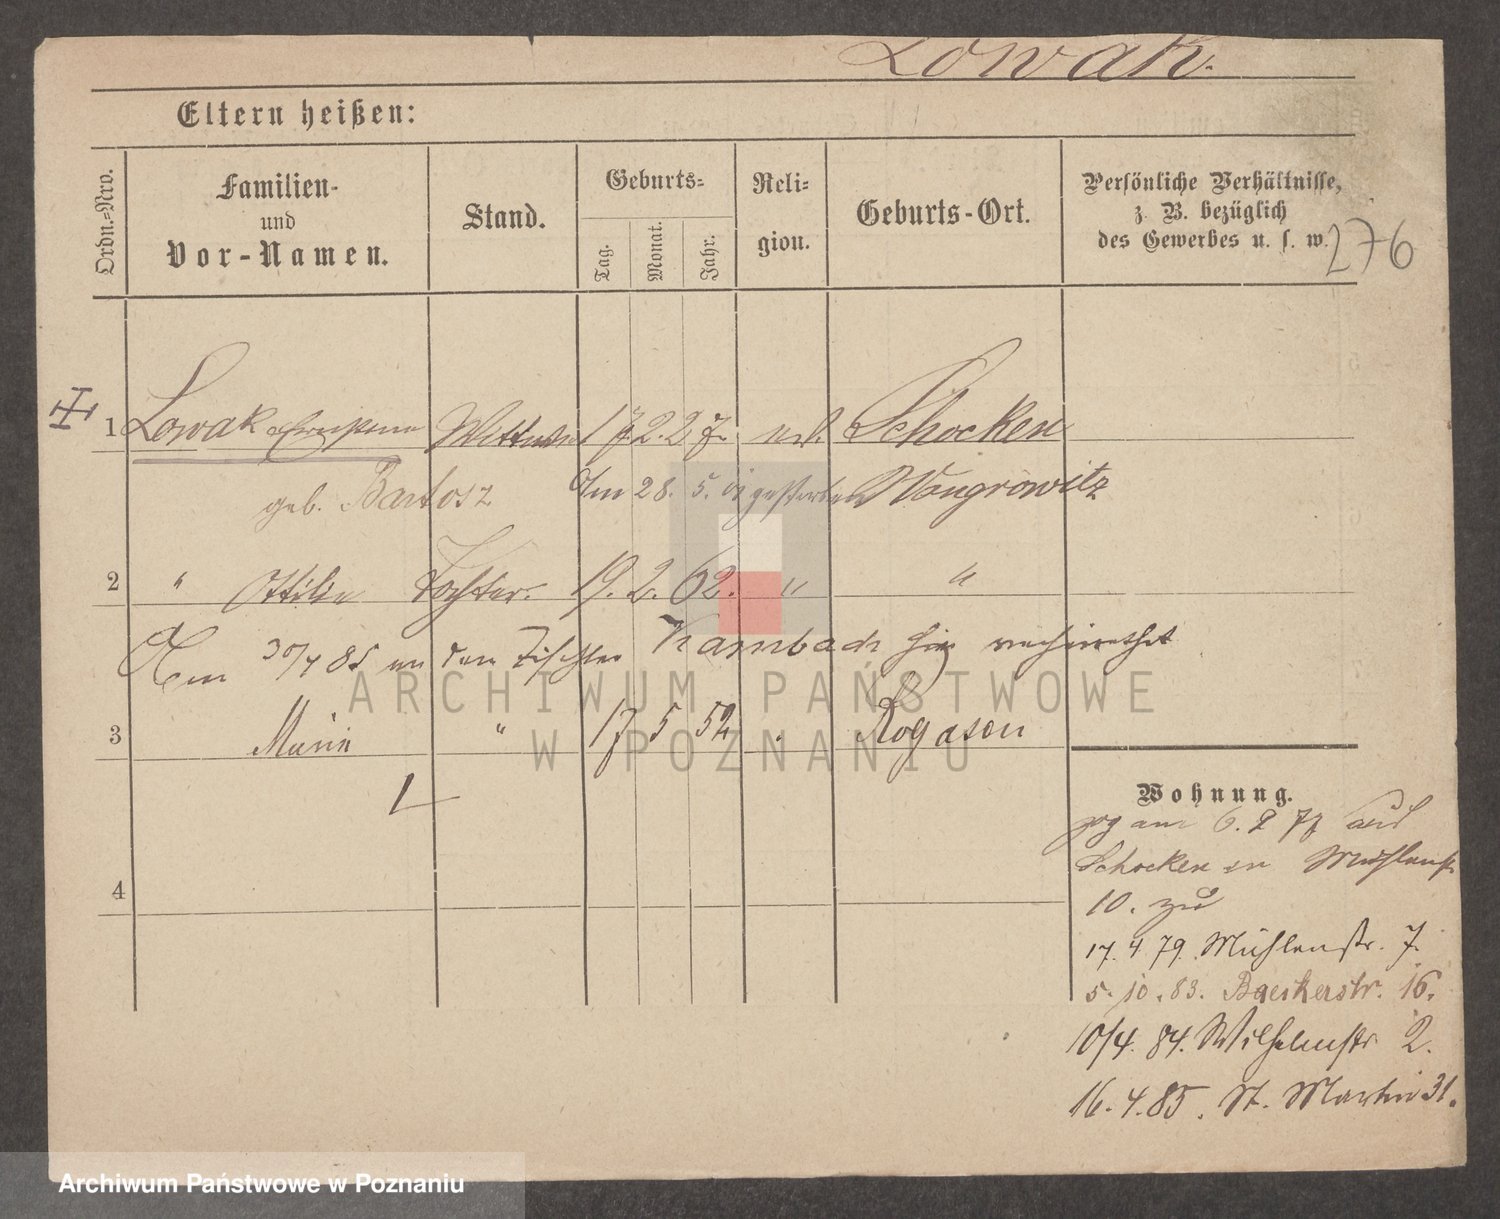 Lowak.
Eltern heißen:
Ordn.-Nro.
Familien-
und
Vor-Namen.
Stand.
Geburts-
Tag.
Monat.
Jahr.
Reli-
gion.
Geburts-Ort.
Persönliche Verhältnisse,
z. B. bezüglich
des Gewerbes u. s. w.
276
1 Lowak Wittwe 17. 2. 27. Schocken
geb. Bartosz Am 28. 5. gestorben Wongrowitz
2 " Ottilie Tochter. 19. 2. 62. " "
Am 30/4 85 an den Tischler Kambach hier verheirathet
3 Marie " 17 5 52 Rogasen
4
Wohnung.
zog am 6. 2 77 aus
Schocken in Mühlenstr
10. zu
17. 4 79. Mühlenstr. 7.
5. 10. 83. Baeckerstr. 16.
10/4. 84. Wilhelmstr 2.
16. 4. 85. St. Martin 31.
ARCHIWUM PAŃSTWOWE
W POZNANIU
Archiwum Państwowe w Poznaniu